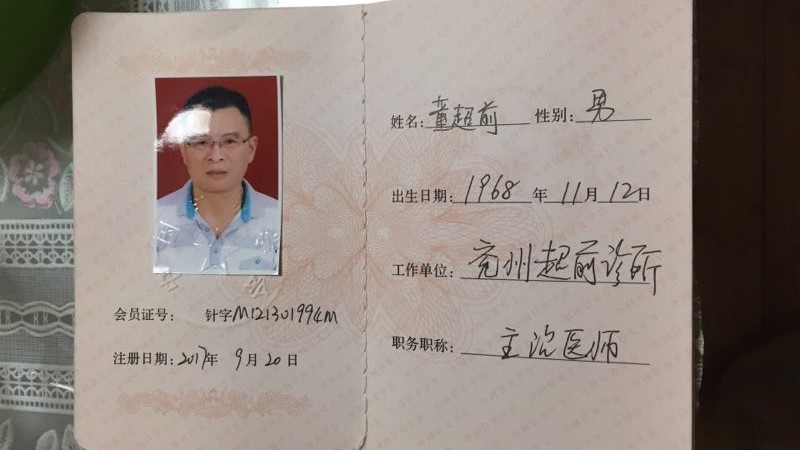 会员证号: 针字M121301994M
注册日期: 2017年 9月20日
姓名: 童超前 性别: 男
出生日期: 1968 年 11月 12日
工作单位: 兖州超前诊所
职务职称: 主治医师